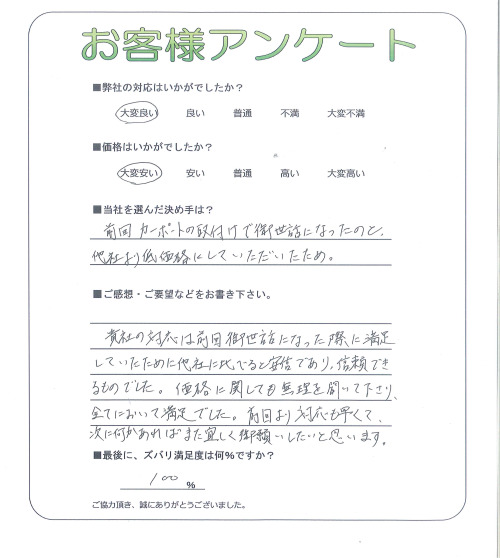 お客様アンケート
■弊社の対応はいかがでしたか？
大変良い 良い 普通 不満 大変不満
■価格はいかがでしたか？
大変安い 安い 普通 高い 大変高い
■当社を選んだ決め手は？
前回カーポートの取付けで御世話になったのと、
他社より低価格にしていただいたため。
■ご感想・ご要望などをお書き下さい。
貴社の対応は前回御世話になった際に満足
していたために他社に比べると安信であり、信頼でき
るものでした。価格に関しても無理を聞いて下さり、
全てにおいて満足でした。前回より対応も早くて、
次に何かあればまた宜しく御願いしたいと思います。
■最後に、ズバリ満足度は何％ですか？
100 %
ご協力頂き、誠にありがとうございました。